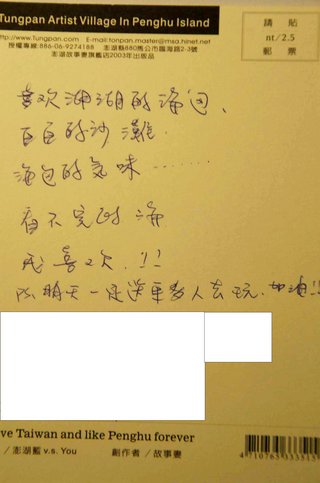 Tungpan Artist Village In Penghu Island
http://www.Tungpan.com E-mail:tonpan.master@msa.hinet.net
授權專線:886-06-9274188 澎湖縣880馬公市臨海路2-3號
澎湖故事妻旗艦店2003年出版品
請 貼
nt/2.5
郵 票
喜歡澎湖的海邊、
白白的沙灘
海邊的氣味………
看不完的海
我喜歡.!!
明天一定 人去玩.加油!!
ve Taiwan and like Penghu forever
/ 澎湖藍 v.s. You 創作者 / 故事妻
4 710765 333515